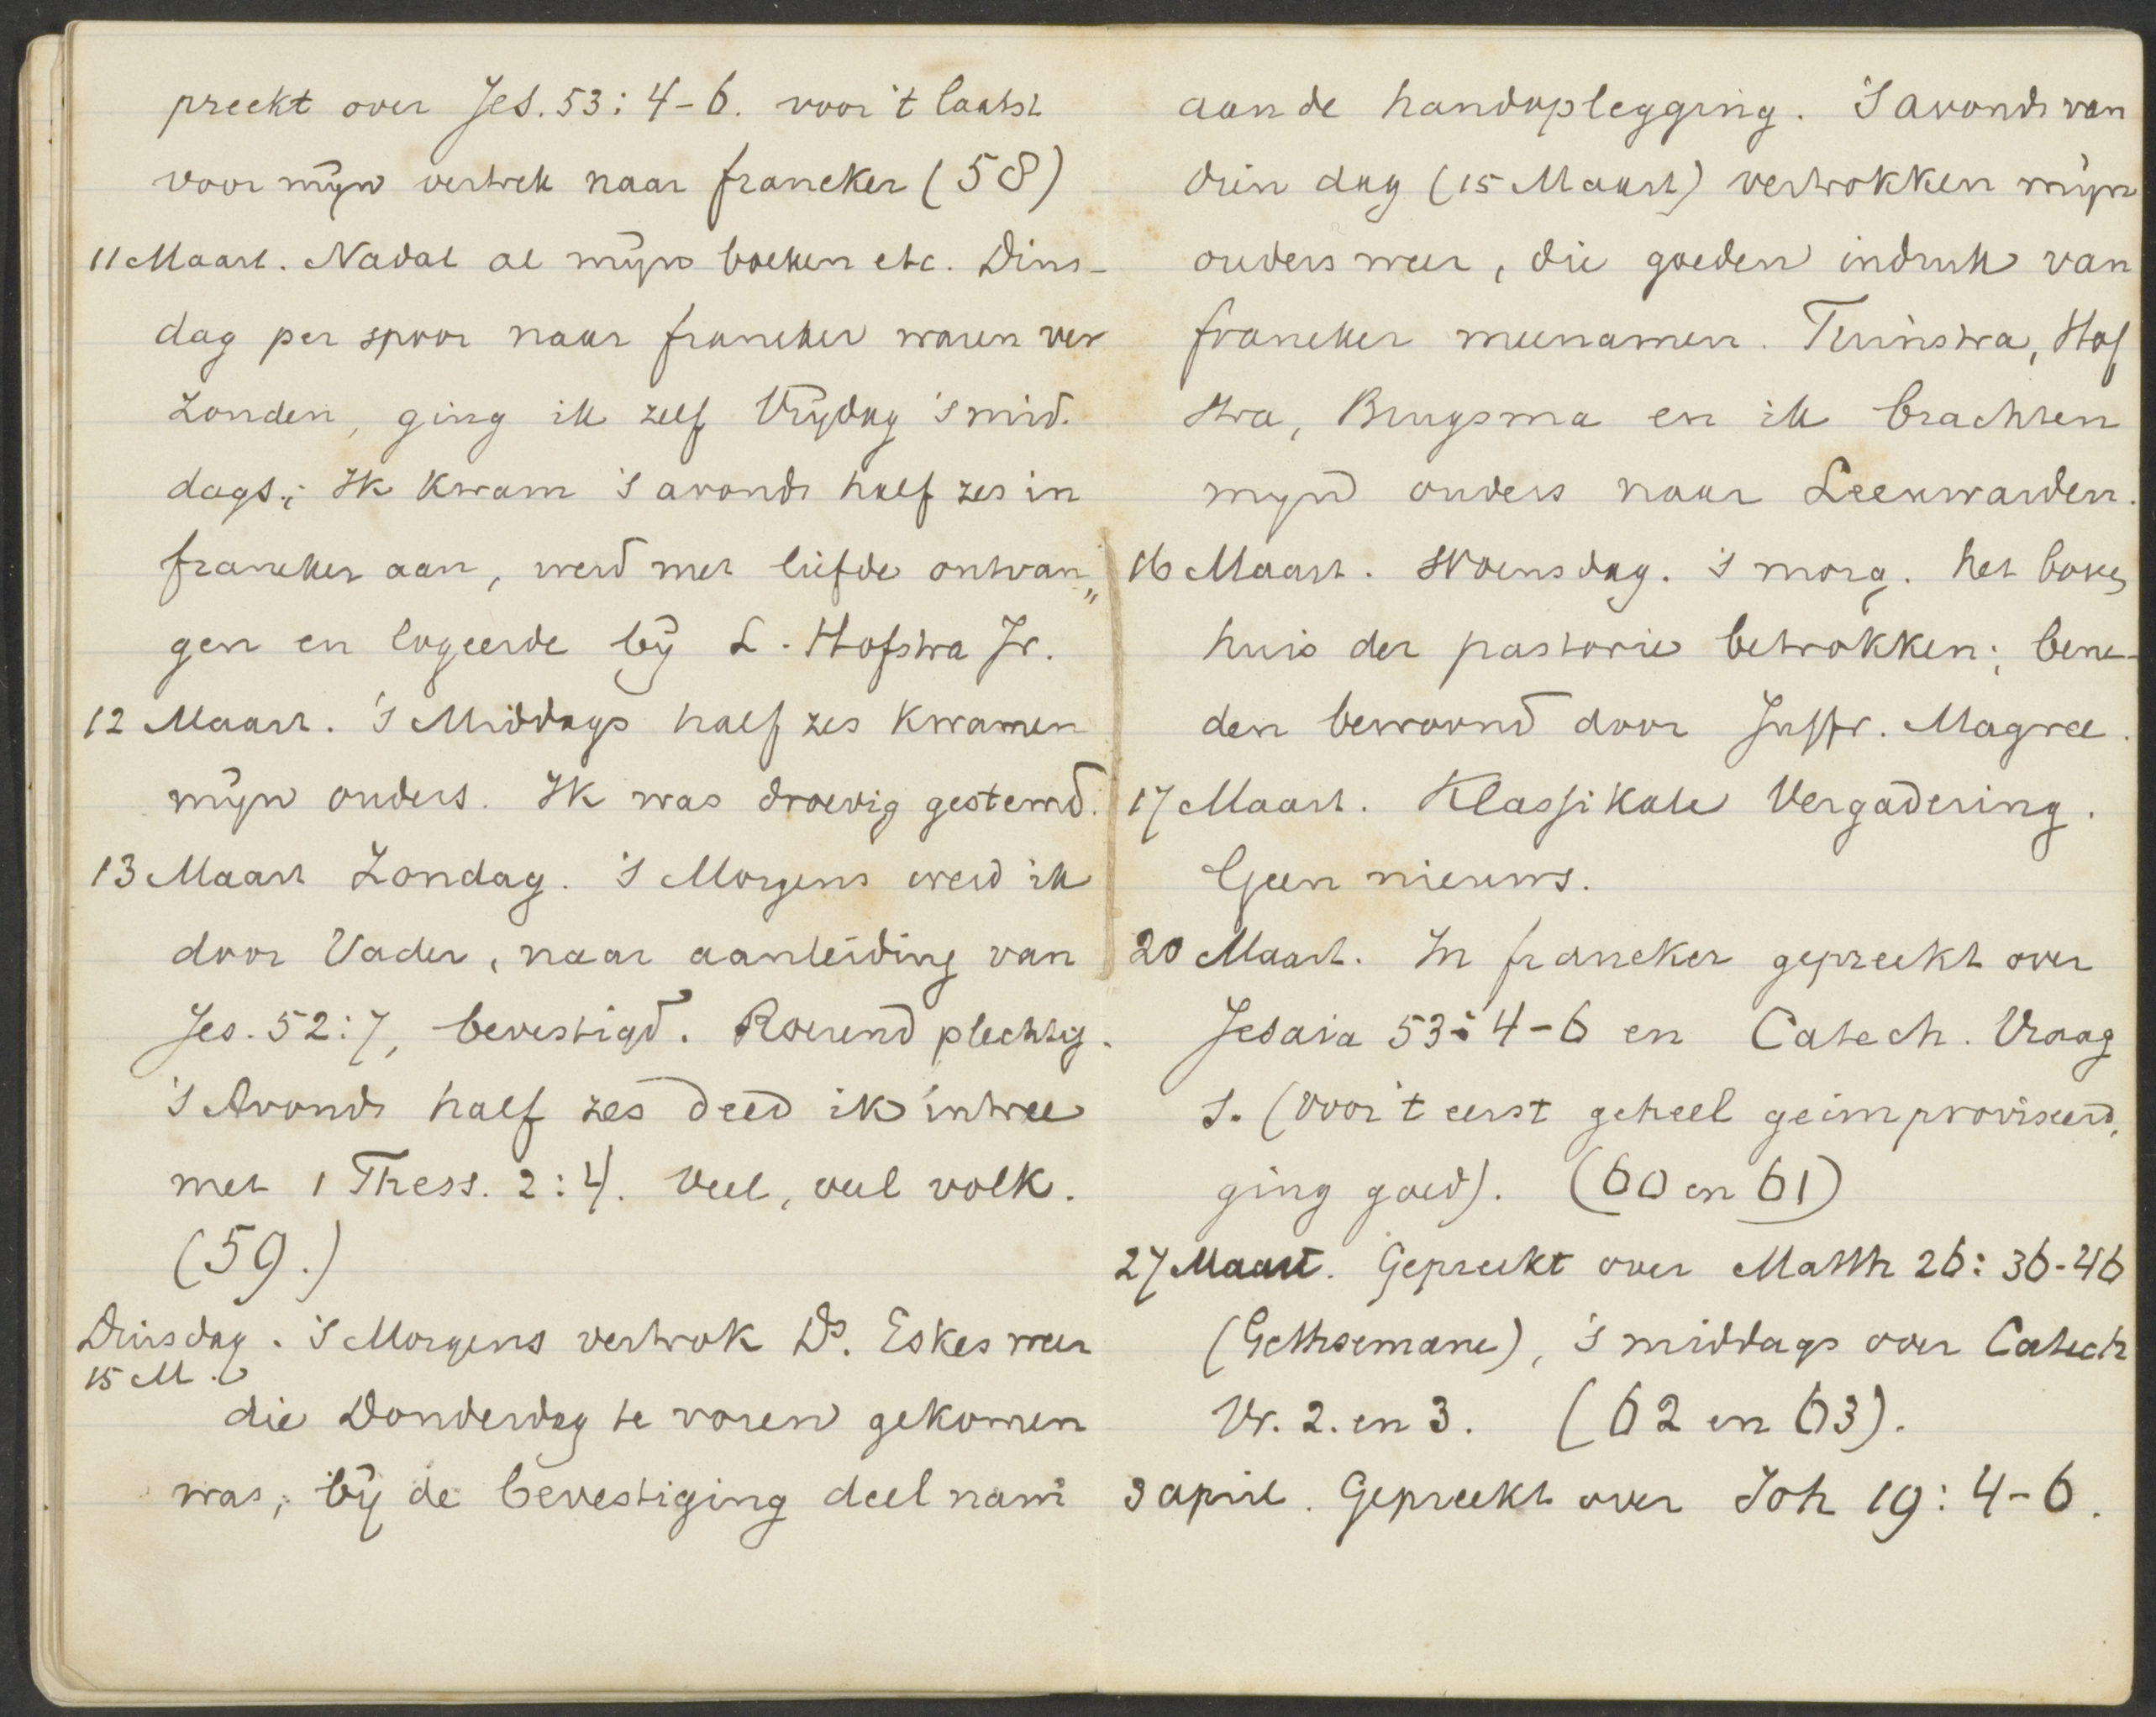 preekt over Jes. 53: 4-6. voor 't laatst
voor mijn vertrek naar Franeker (58)
11 Maart. Nadat al mijn boeken etc. Dins-
dag per spoor naar Franeker waren ver
zonden, ging ik zelf Vrijdag 's mid.
dags; Ik kwam 's avonds half zes in
Franeker aan, werd met liefde ontvan„
gen en logeerde bij L. Hofstra Jr.
12 Maart. 's Middags half zes kwamen
mijn ouders. Ik was droevig gestemd.
13 Maart Zondag. 's Morgens werd ik
door Vader, naar aanleiding van
Jes. 52:7, bevestigd. Roerend plechtig.
's Avonds half zes deed ik intree
met 1 Thess. 2:4. Veel, veel volk.
(59.)
Dinsdag. 's Morgens vertrok Ds. Eskes weer
15 M.
die Donderdag te voren gekomen
was, bij de bevestiging deel nam
aan de handoplegging. 's avonds van
dien dag (15 Maart) vertrokken mijn
ouders weer, die goeden indruk van
Franeker meenamen. Tuinstra, Hof
stra, Brugsma en ik brachten
mijn ouders naar Leeuwarden.
16 Maart. Woensdag. 's morg. het boven
huis der pastorie betrokken; bene-
den bewoond door Juffr. Magree.
17 Maart. Klassikale Vergadering.
Geen nieuws.
20 Maart. In Franeker gepreekt over
Jesaia 53: 4-6 en Catech. Vraag
1. (voor 't eerst geheel geimproviseerd,
ging goed). (60 en 61)
27 Maart. Gepreekt over Matth 26: 36-46
(Gethsemane), 's middags over Catech
Vr. 2. en 3. (62 en 63).
3 april. Gepreekt over Joh 19: 4-6.